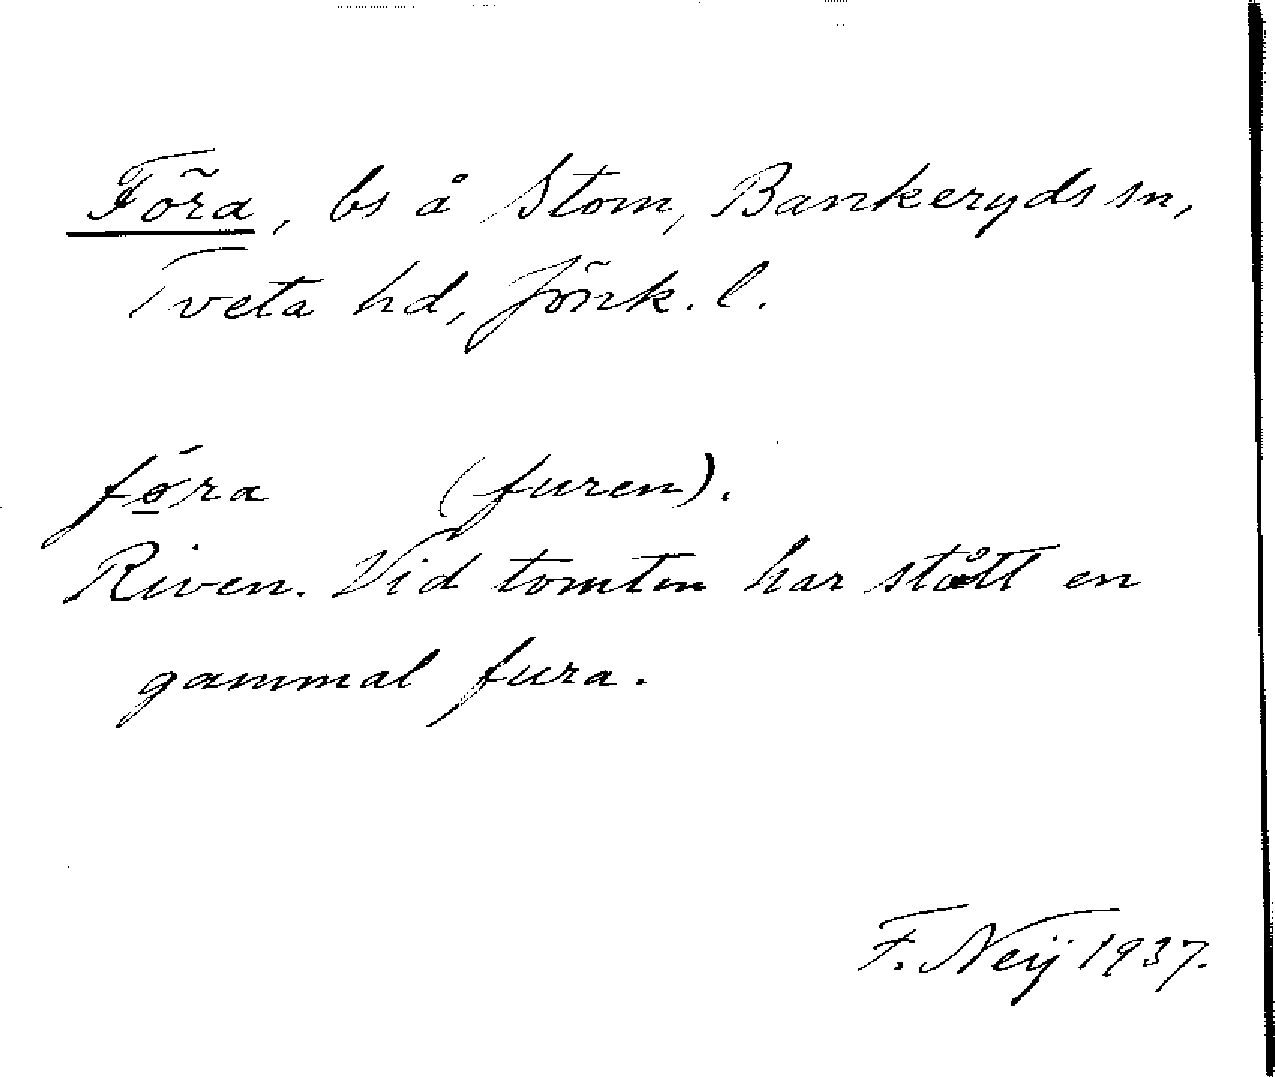 Föra, bs å Stom, Bankeryds sn,
Tveta hd, Jönk. l.
fǿ̱ra (furen).
Riven. Vid tomten har stått en
gammal fura.
F. Neij 1937.